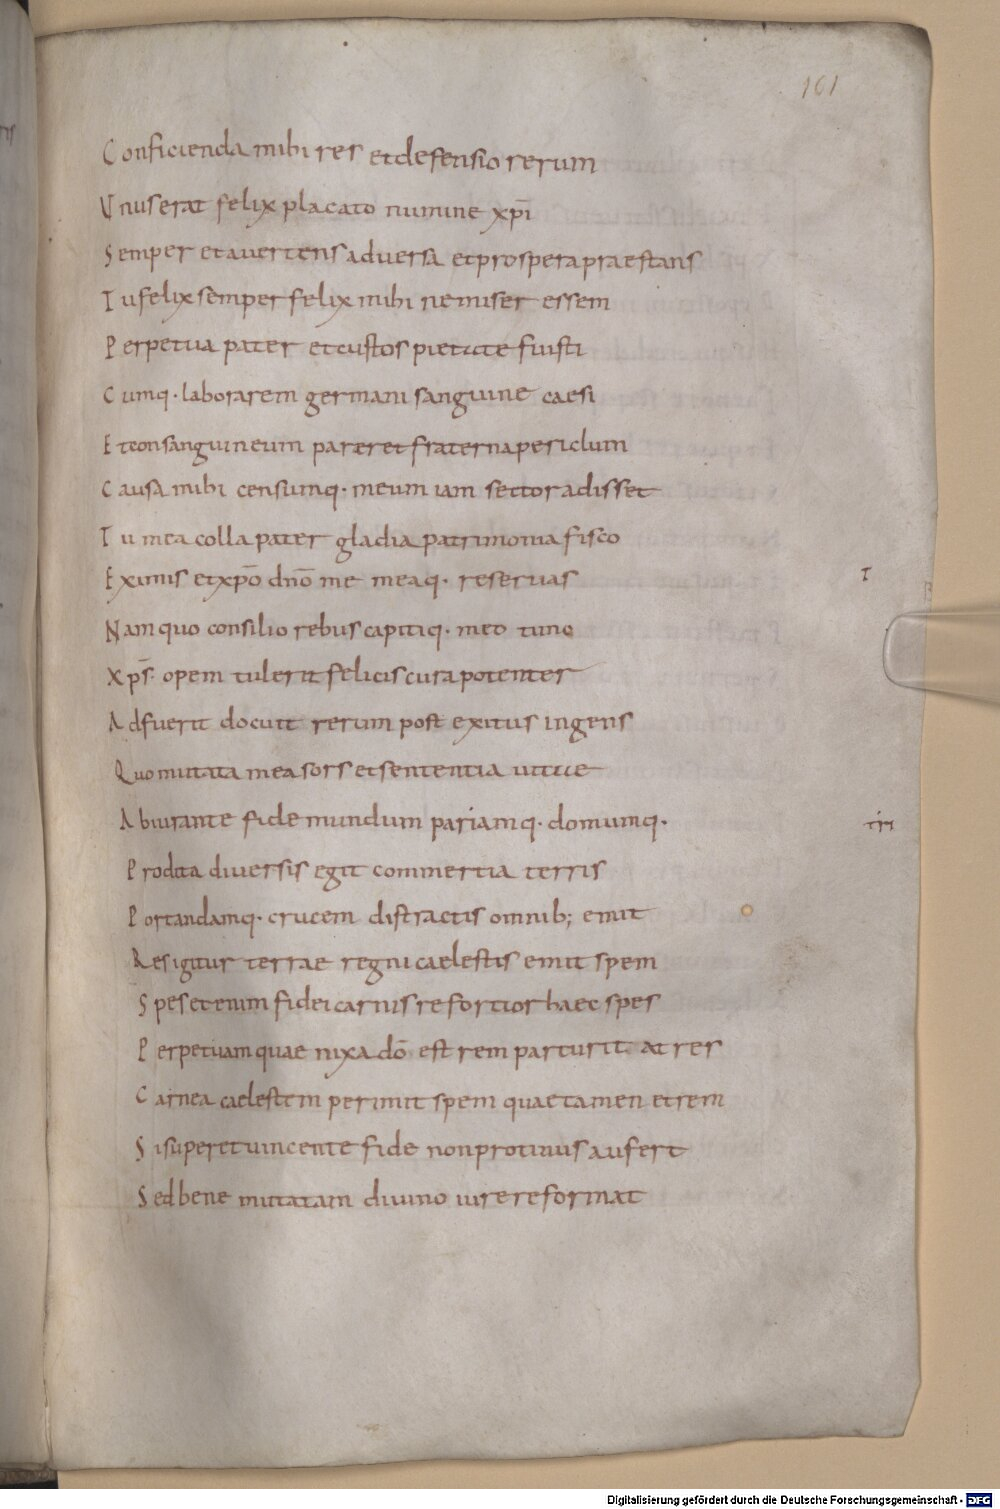 101
Conficienda mihi res et defensio rerum
Unus erat felix placato numine xp̄i
Semper et avertens adversa et prospera praestans
Tu felix semper felix mihi ne miser essem
Perpetua pater et custos pietate fuisti
Cumq· laborarem germani sanguine caesi
Et consanguineum pareret fraterna periclum
Causa mihi censumq· meum iam sector adisset
Tu mea colla pater gladia patrimonia fisco
Eximis et xp̄o dn̄o me meaq· reservas
T
Nam quo consilio rebus capitiq· meo tunc
Xp̄s· opem tulerit felicis cura potenter
Adfuerit docuit rerum post exitus ingens
Quo mutata mea sors et sententia vitae
Abiurante fide mundum pariamq· domumq·
Prodita diversis egit commertia terris
Portandamq· crucem distractis omnib; emit
Res igitur terrae regni caelestis emit spem
Spes etenim fidei carnis re fortior haec spes
Perpetuam quae nixa dō est rem parturit at res
Carnea caelestem perimit spem quae tamen et rem
Si superet vincente fide non protinus aufert
Sed bene mutatam divino iure reformat
Digitalisierung gefördert durch die Deutsche Forschungsgemeinschaft - DFG